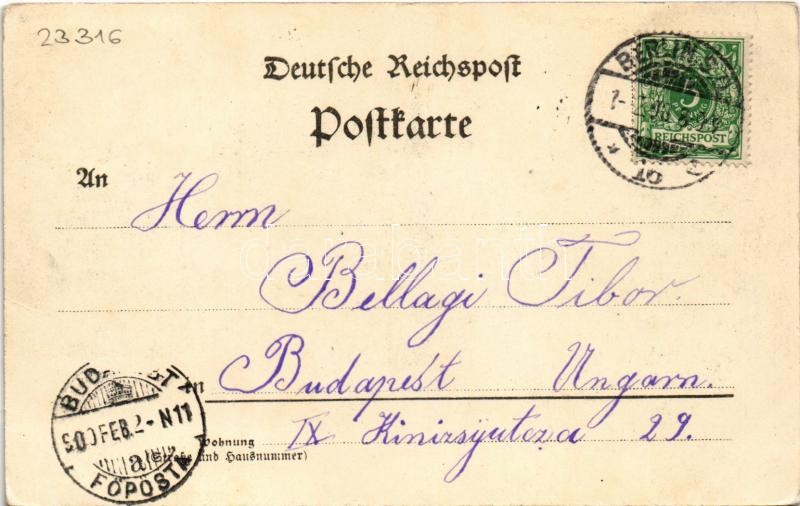 23316
Deutsche Reichspost
Postkarte
BERLIN
REICHSPOST
10
An
Herrn
Bellagi Tibor.
Budapest Ungarn.
IX Kinizsyutcza 29.
Wohnung
(Straße und Hausnummer)
BUDAPEST
900 FEB. 2 - N11
a
FŐPOSTA
darabanth